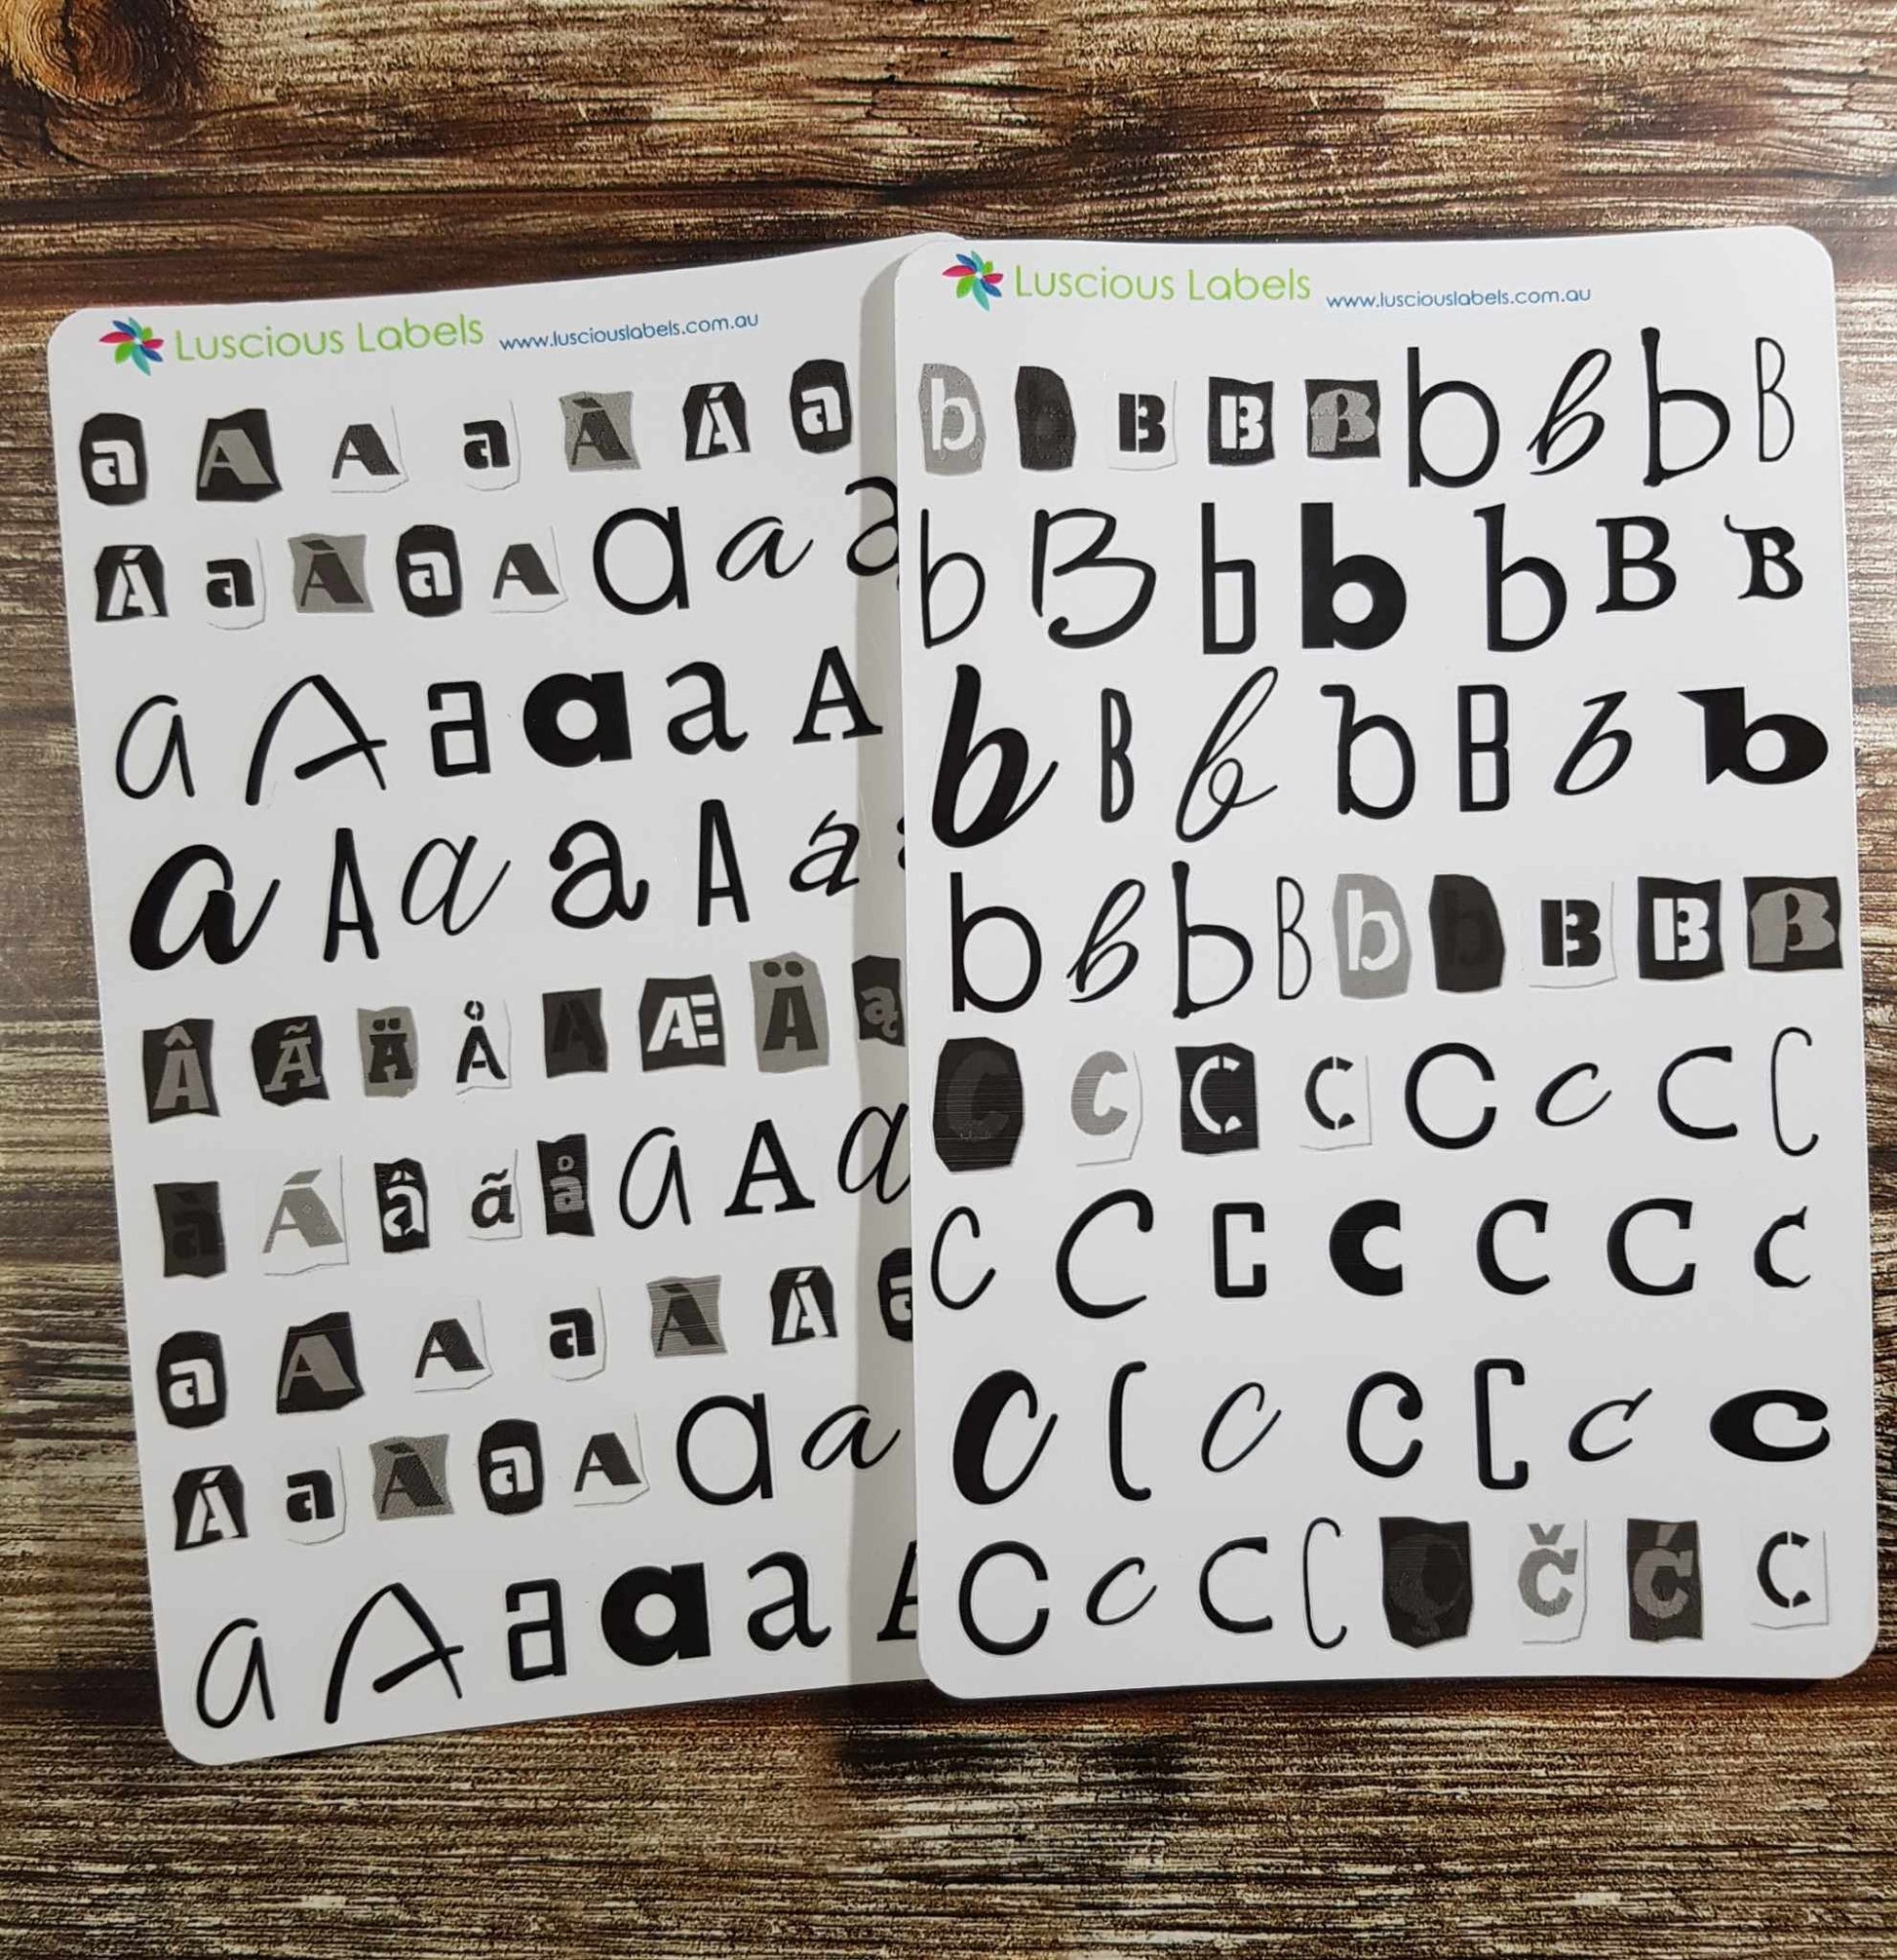 Luscious Labels www.lusciouslabels.com.au
a A A a À Á a
Á a À a A a a a
a A a a a A
a A a a A a
Â Ã Ä Å A Æ Ä ą
à Á â ã å a A a
a A A a À Á a
Á a À a A a a
a A a a a A
Luscious Labels www.lusciouslabels.com.au
b b B B B b b b B
b B b b b B B
b B b b B b b
b b b B b b B B B
C C C C C c C C
C C C C C C C
C C C C C C C
C c C C Ç Č Ć C